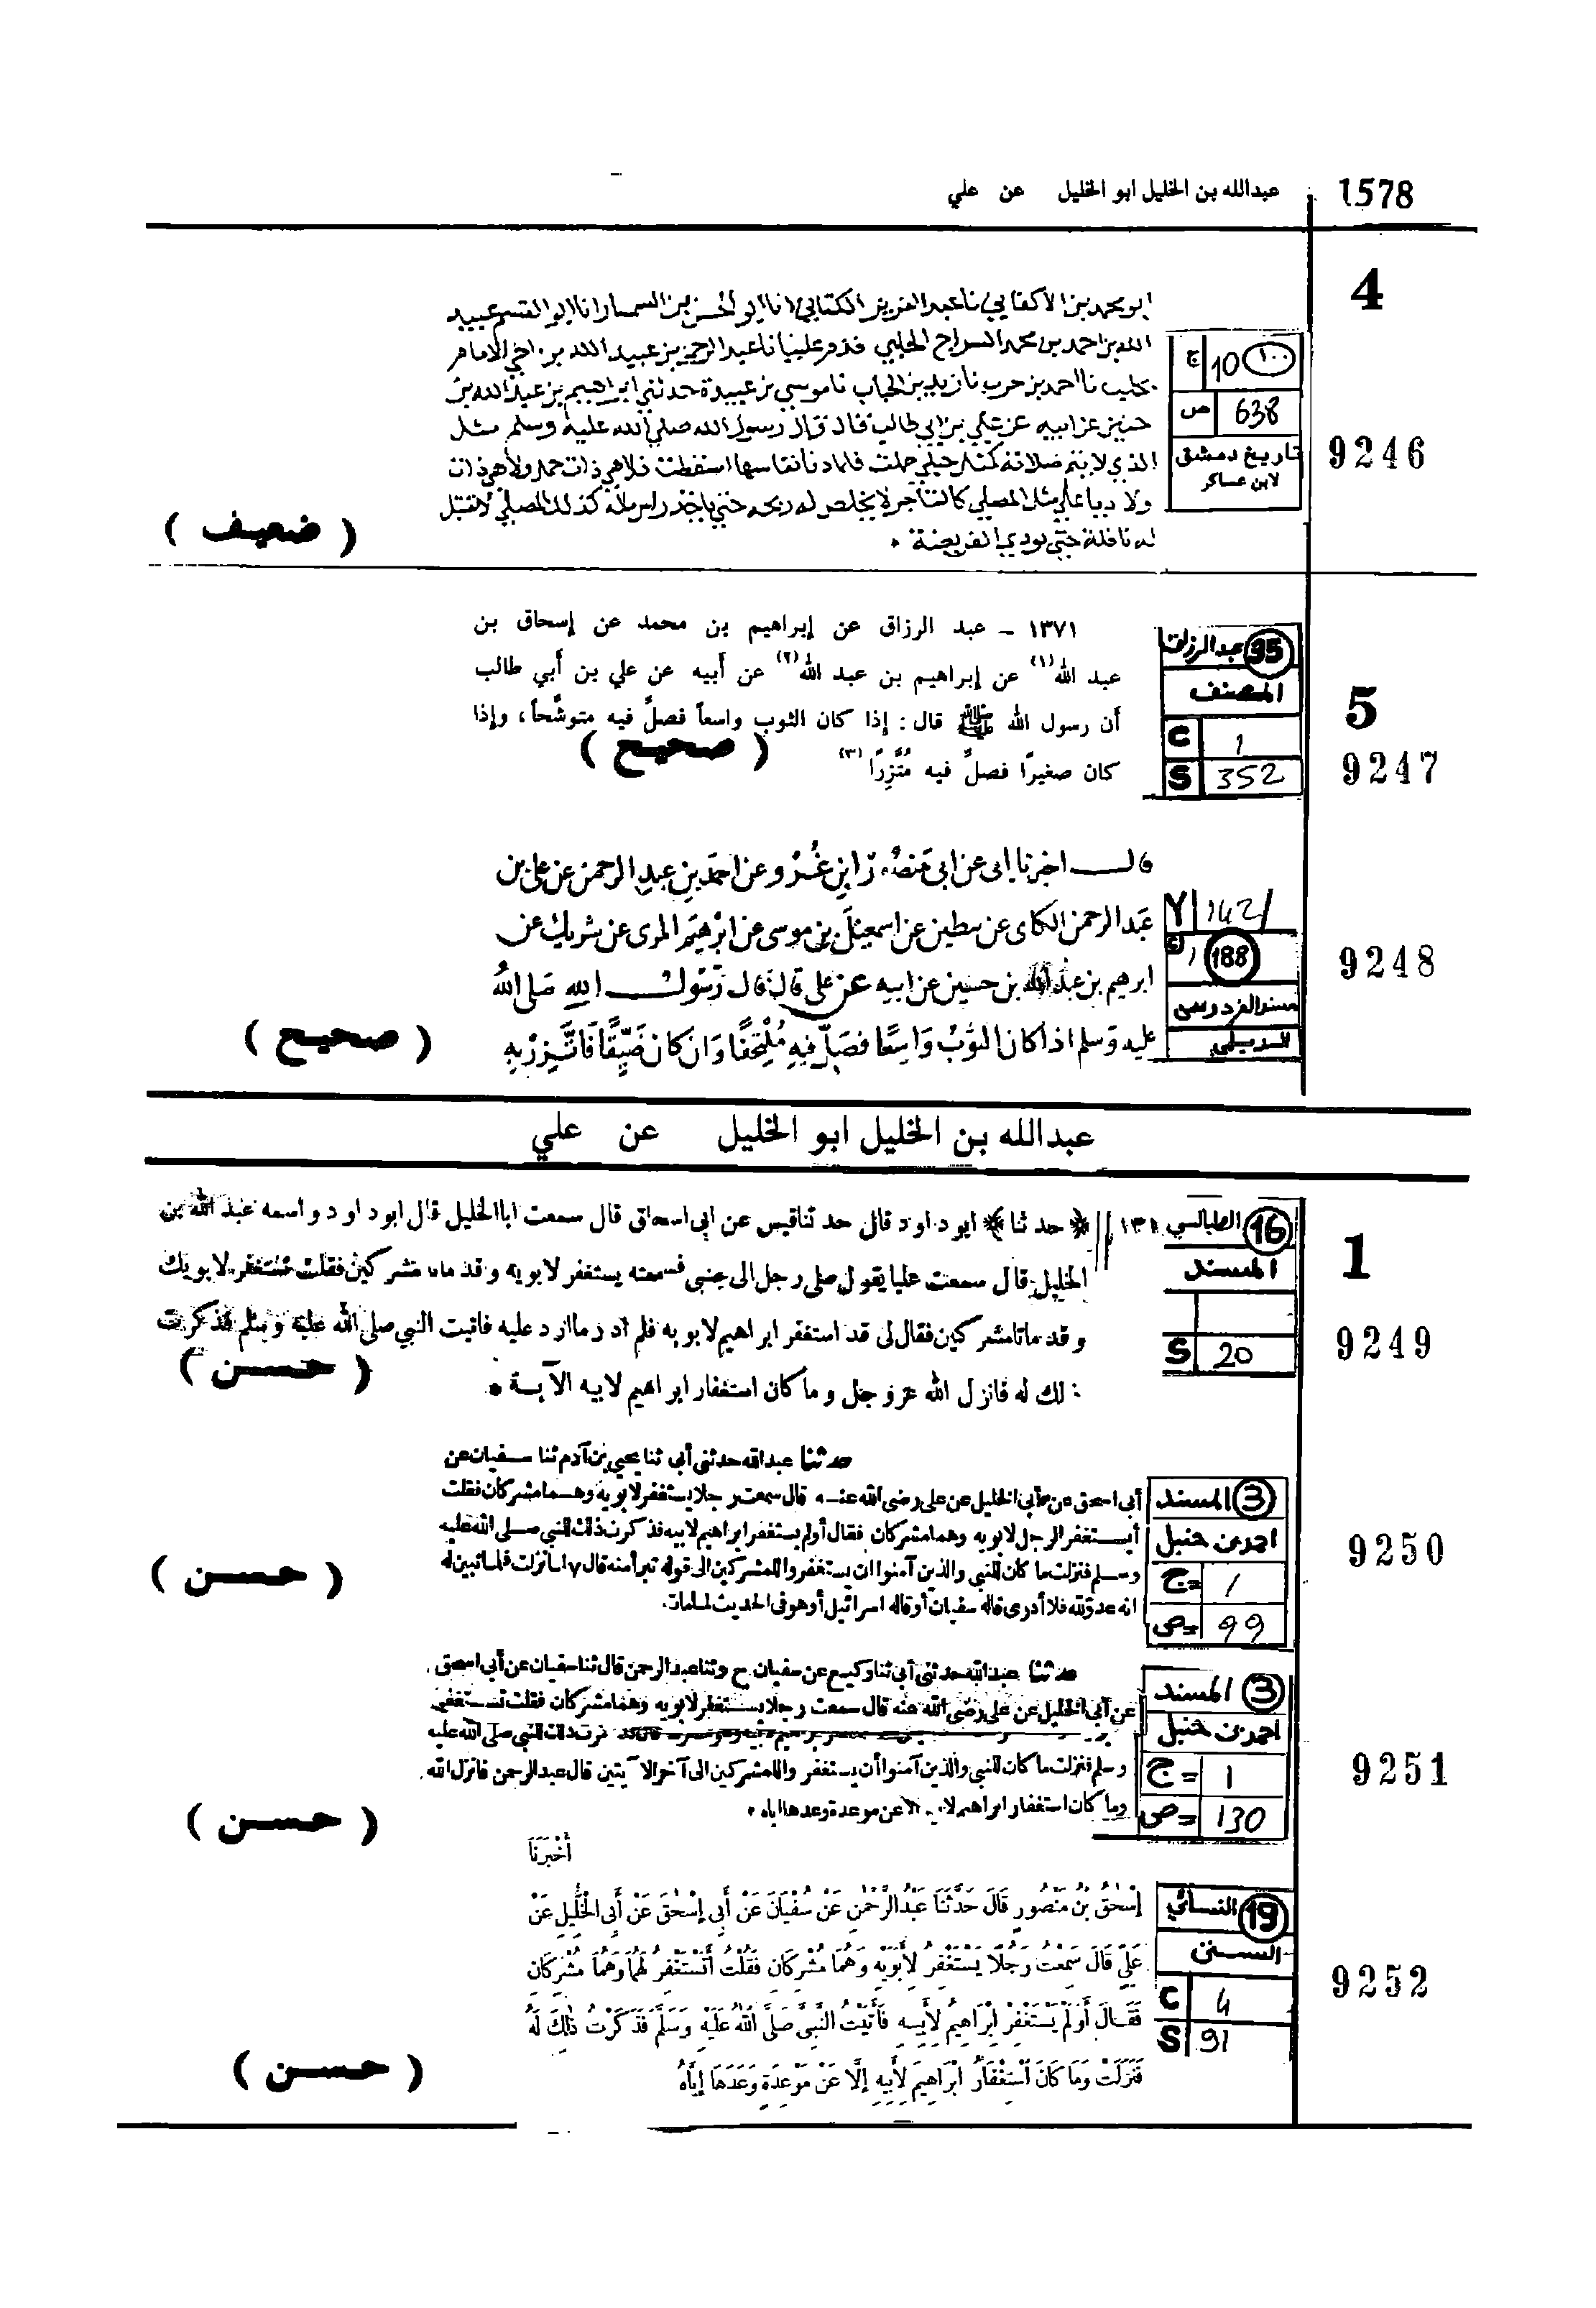 1578 عبدالله بن الخليل ابو الخليل عن علي
4
ابو محمد بن الاكفاني نا عبد العزيز الكتاني انا ابو الحسن بن السمسار انا ابو القسم عبيد
الله بن احمد بن محمد السراج الحلبي قدم علينا نا عبد الرحمن بن عبيد الله بن اخي الامام
بحلب نا احمد بن حرب نا زيد بن الحباب نا موسي بن عبيدة حدثني ابراهيم بن عبد الله بن
حنين عن ابيه عن علي بن ابي طالب قال قال رسول الله صلي الله عليه وسلم مثل
الذي لا يتم صلاته كمثل حبلي حملت فلما دنا نفاسها اسقطت فلا هي ذات حمل ولا هي ذات
ولا ديا علي مثل المصلي كالتاجر لا يخلص له ربحه حتي ياخذ راس ماله كذلك المصلي لا تقبل
له نافلة حتي يودي الفريضة *
( ضعيف )
١٠٠ 10 ج
638 ص
تاريخ دمشق
لابن عساكر
9246
١٣٧١ – عبد الرزاق عن إبراهيم بن محمد عن إسحاق بن
عبد الله (١) عن إبراهيم بن عبد الله (٢) عن أبيه عن علي بن أبي طالب
أن رسول الله ﷺ قال : إذا كان الثوب واسعاً فصلِّ فيه متوشّحاً ، وإذا
كان صغيرًا فصلِّ فيه مُتَّزِرًا (٣)
( صحيح )
35 عبدالرزاق
المصنف
C 1
S 352
5
9247
قال اخبرنا ابى عن ابى منصور ابن غُرْو عن احمد بن عبد الرحمن عن على بن
عبد الرحمن البكاى عن مطين عن اسمعيل بن موسى عن ابرهيم المرى عن شريك عن
ابرهيم بن عبد الله بن حسين عن ابيه عن على قال قال رسول الله صلى الله
عليه وسلم اذا كان الثوب واسعًا فصلّ فيه ملتحفًا وان كان ضيّقًا فاتّزر به
( صحيح )
Y 142
188
مسند الفردوس
للديلمي
9248
عبدالله بن الخليل ابو الخليل عن علي
﴿ حدثنا ﴾ ابو داود قال حدثنا قيس عن ابى اسحاق قال سمعت ابا الخليل قال ابو داود واسمه عبد الله بن
الخليل قال سمعت عليا يقول صلى رجل الى جنبى فسمعته يستغفر لابويه وقد ماتا مشركين فقلت تستغفر لابويك
وقد ماتا مشركين فقال لى قد استغفر ابراهيم لابويه فلم ادر ما ارد عليه فاتيت النبي صلى الله عليه وسلم فذكرت
ذلك له فانزل الله عز وجل وما كان استغفار ابراهيم لابيه الآية *
( حسن )
16 الطيالسي ١٣١
المسند
S 20
1
9249
حدثنا عبدالله حدثنى أبى ثنا يحيى بن آدم ثنا سفيان عن
أبى اسحق عن أبى الخليل عن على رضى الله عنه قال سمعت رجلا يستغفر لابويه وهما مشركان فقلت
أيستغفر الرجل لابويه وهما مشركان فقال أولم يستغفر ابراهيم لابيه فذكرت ذلك للنبى صلى الله عليه
وسلم فنزلت ما كان للنبى والذين آمنوا ان يستغفروا للمشركين الى قوله تبرأ منه قال لما نزلت فلما تبين له
انه عدو لله فلا أدرى قاله سفيان أو قاله اسرائيل أو هو فى الحديث لما مات.
( حسن )
3 المسند
احمد بن حنبل
ج= 1
ص= 99
9250
حدثنا عبدالله حدثنى أبى ثنا وكيع عن سفيان ح وثنا عبد الرحمن قال ثنا سفيان عن أبى اسحق
عن أبى الخليل عن على رضى الله عنه قال سمعت رجلا يستغفر لابويه وهما مشركان فقلت تستغفر
ذلك للنبى صلى الله عليه
وسلم فنزلت ما كان للنبى والذين آمنوا أن يستغفروا للمشركين الى آخر الآيتين قال عبد الرحمن فانزل الله
وما كان استغفار ابراهيم الا عن موعدة وعدها اياه *
( حسن )
3 المسند
احمد بن حنبل
ج= 1
ص= 130
9251
أَخْبَرَنَا
إِسْحٰقُ بْنُ مَنْصُورٍ قَالَ حَدَّثَنَا عَبْدُ الرَّحْمٰنِ عَنْ سُفْيَانَ عَنْ أَبِي إِسْحٰقَ عَنْ أَبِي الْخَلِيلِ عَنْ
عَلِيٍّ قَالَ سَمِعْتُ رَجُلًا يَسْتَغْفِرُ لِأَبَوَيْهِ وَهُمَا مُشْرِكَانِ فَقُلْتُ أَتَسْتَغْفِرُ لَهُمَا وَهُمَا مُشْرِكَانِ
فَقَالَ أَوَلَمْ يَسْتَغْفِرْ إِبْرَاهِيمُ لِأَبِيهِ فَأَتَيْتُ النَّبِيَّ صَلَّى اللهُ عَلَيْهِ وَسَلَّمَ فَذَكَرْتُ ذٰلِكَ لَهُ
فَنَزَلَتْ وَمَا كَانَ اسْتِغْفَارُ إِبْرَاهِيمَ لِأَبِيهِ إِلَّا عَنْ مَوْعِدَةٍ وَعَدَهَا إِيَّاهُ
( حسن )
19 النسائي
السنن
C 4
S 91
9252